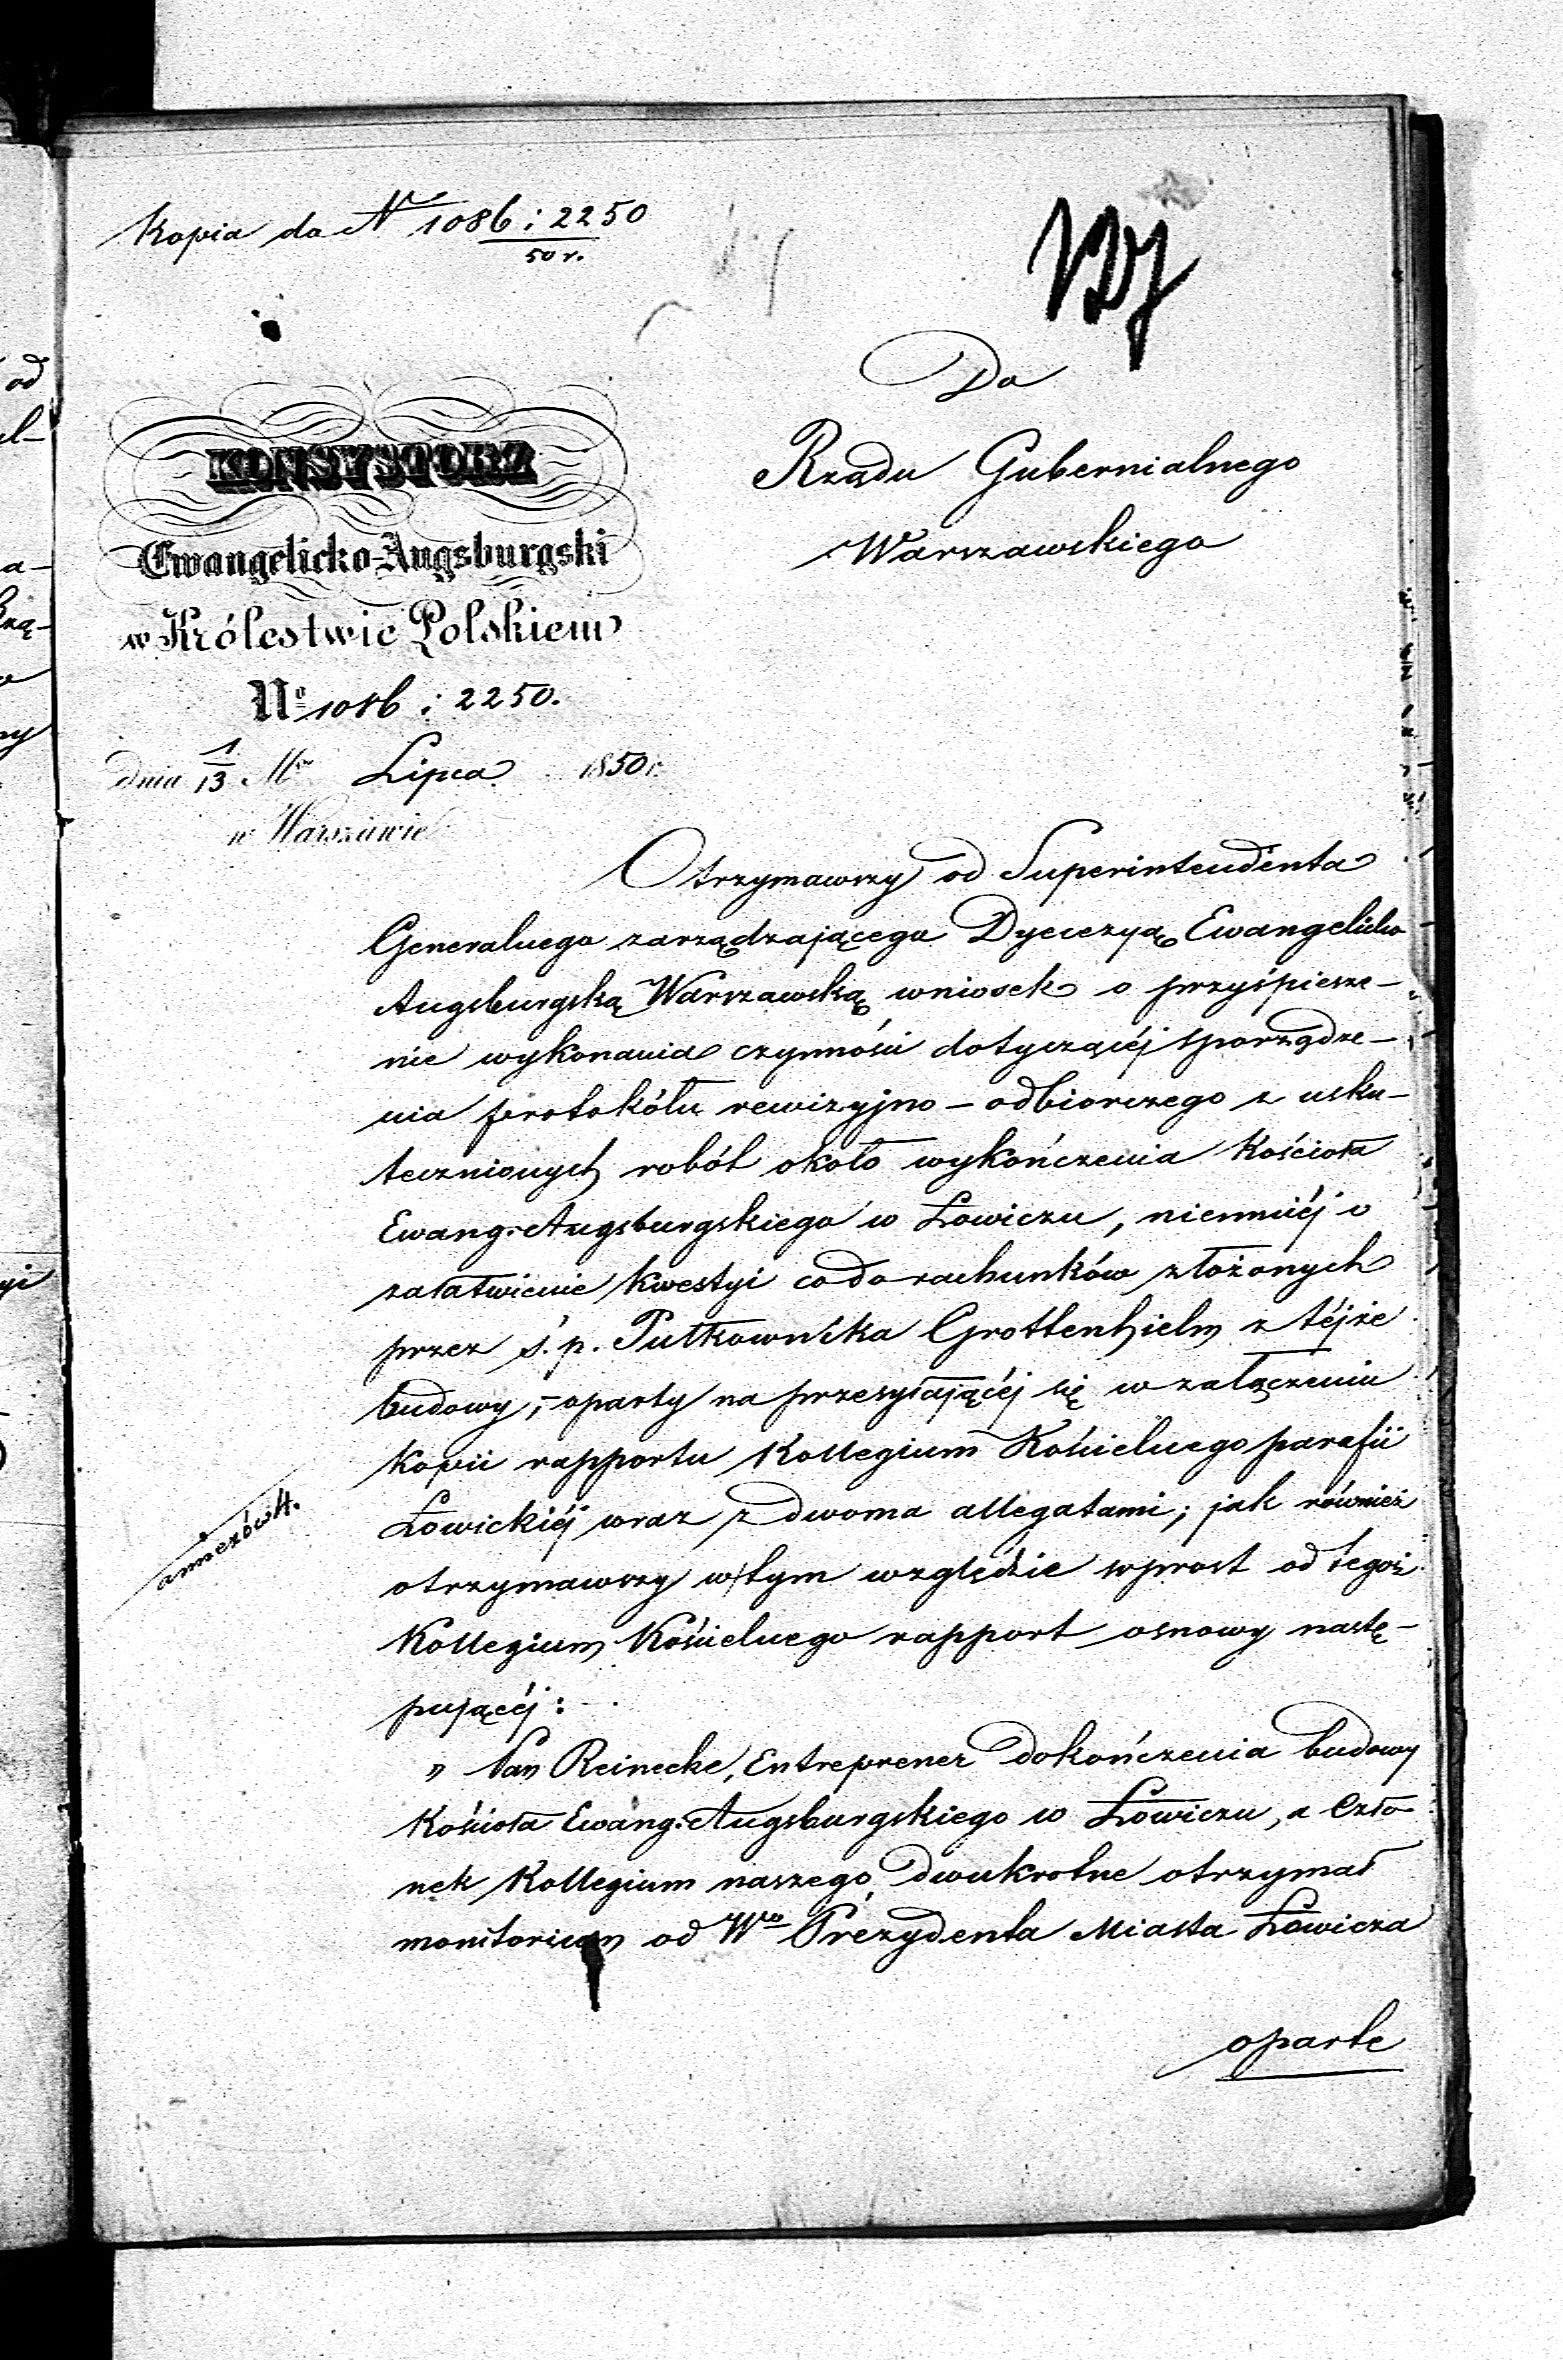 Kopia do Nr 1086 : 2250
50 r.
Do
Rządu Gubernialnego
Warszawskiego
KONSYSTORZ
Ewangelicko-Augsburgski
w Królestwie Polskiem
No 1086 : 2250.
dnia 1/13 Mca Lipca 1850 r.
w Warszawie
Otrzymawszy od Superintendenta
Generalnego zarządzającego Dyecezyą Ewangelicko
Augsburgską Warszawską wniosek o przyśpiesze-
nie wykonania czynności dotyczącéj sporządze-
nia protokółu rewizyjno-odbiorczego z usku-
tecznionych robót około wykończenia Kościoła
Ewang: Augsburgskiego w Łowiczu, niemniéj o
załatwienie kwestyi co do rachunków złożonych
przez ś. p. Pułkownika Grottenhielm z téjże
budowy,- oparty na przesyłającéj się w załączeniu
kopii rapportu Kollegium Kościelnego parafii
Łowickiéj wraz z dwoma allegatami; jak również
annexów 4.
otrzymawszy w tym względzie wprost od tegoż
Kollegium Kościelnego rapport osnowy nastę-
pującéj:
" Pan Reinecke, Entreprener dokończenia budowy
Kościoła Ewang: Augsburgskiego w Łowiczu, a Czło-
nek Kollegium naszego dwukrotne otrzymał
monitorium od Wo Prezydenta Miasta Łowicza
oparte
od
el-
a-
ny
yi